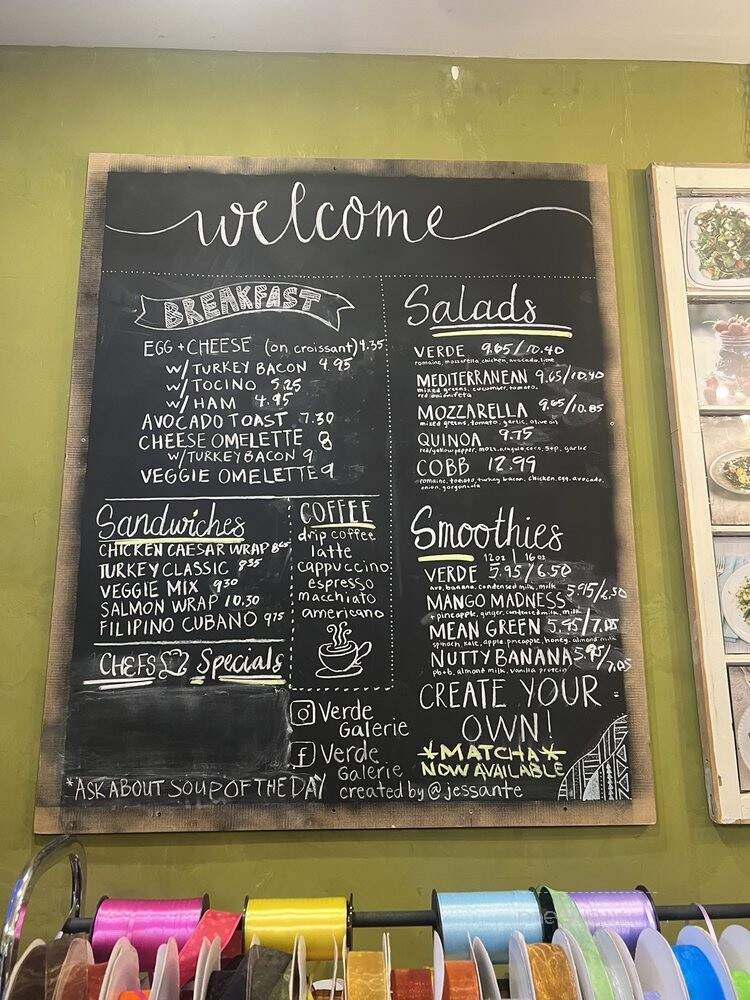 welcome
BREAKFAST
EGG + CHEESE (on croissant) 4.35
w/ TURKEY BACON 4.95
w/ TOCINO 5.25
w/ HAM 4.95
AVOCADO TOAST 7.30
CHEESE OMELETTE 8
w/ TURKEY BACON 9
VEGGIE OMELETTE 9
Sandwiches
CHICKEN CAESAR WRAP
TURKEY CLASSIC
VEGGIE MIX 9.30
SALMON WRAP 10.30
FILIPINO CUBANO 9.75
COFFEE
drip coffee
latte
cappuccino
espresso
macchiato
americano
CHEFS Specials
Verde
Galerie
f Verde
Galerie
*ASK ABOUT SOUP OF THE DAY
created by @jessante
Salads
VERDE 9.65/10.40
romaine, mozzarella, chicken, avocado, lime
MEDITERRANEAN 9.65/10.40
mixed greens, cucumber, tomato,
red onion, feta
MOZZARELLA 9.65/10.85
mixed greens, tomato, garlic, olive oil
QUINOA 9.75
red/yellow pepper, mozz, arugula, corn, garlic
COBB 12.99
romaine, tomato, turkey bacon, chicken, egg, avocado,
onion, gorgonzola
Smoothies
12oz | 16oz
VERDE 5.95/6.50
avo, banana, condensed milk, milk
MANGO MADNESS 5.95/6.50
+ pineapple, ginger, condensed milk, milk
MEAN GREEN 5.95/7.05
spinach, kale, apple, pineapple, honey, almond milk
NUTTY BANANA 5.95/7.05
pb+b, almond milk, vanilla protein
CREATE YOUR
OWN!
*MATCHA*
NOW AVAILABLE